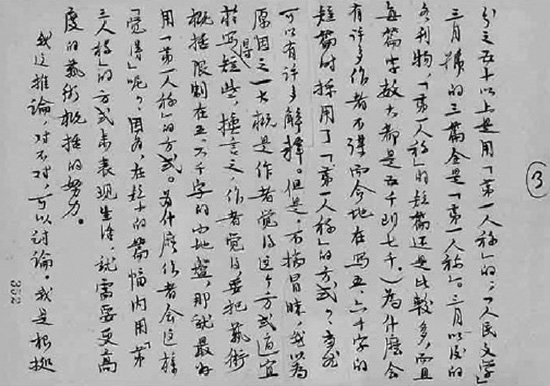 分之五十以上是用「第一人称」的；「人民文学」
三月号的三篇全是「第一人称」。三月以后的
各刊物，「第一人称」的短篇还是比较多，而且
每篇字数大都是五千到七千。）为什么会
有许多作者不谋而合地在写五、六千字的
短篇时采用了「第一人称」的方式？当然
可以有许多解释。但是，不揣冒昧，我以为
原因之一大概是作者觉得这个方式适宜
于写得短些，换言之，作者觉得要把艺术
概括限制在五、六千字的小地盘，那就最好
用「第一人称」的方式。为什么作者会这样
「觉得」呢？因为，在短小的篇幅内用「第
三人称」的方式来表现生活，就需要更高
度的艺术概括的努力。
我这推论，对不对，可以讨论。我是根据
3
352